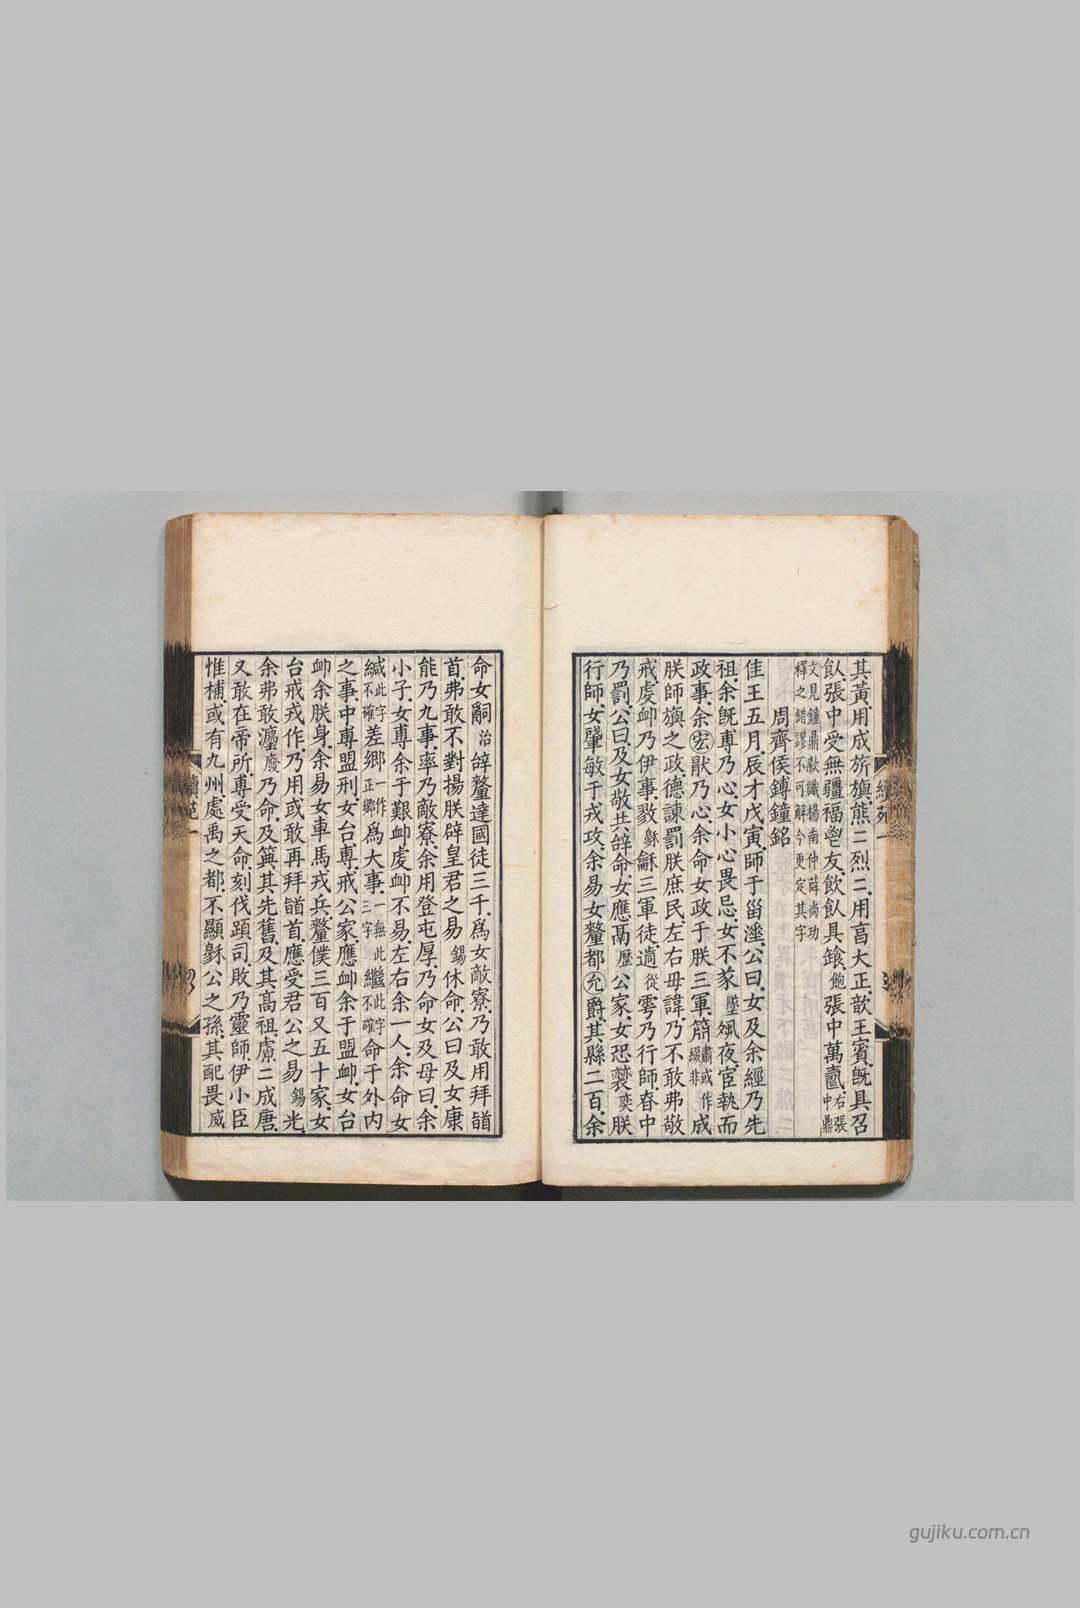 其黄用成旂旟熊二烈二用亯大正歆王賓旣具召
飤張中受無疆福彪友飲飤具餯飽張中萬壽右張中鼎
文見鐘鼎欵識楊南仲薛尚功
釋之錯謬不可解今更定其字
周齊侯鎛鐘銘
隹王五月辰才戊寅師于甾潌公曰女及余經乃先
祖余旣尃乃心女小心畏忌女不豙墜𡖊夜宦執而
政事余宏猒乃心余命女政于朕三軍𥳑肅或作縀非成
朕師旟之政德諫罰朕庶民左右毋諱乃不敢弗敬
戒虔卹乃伊事戮龢龢三軍徒遹從雩乃行師春中
乃罰公曰及女敬共辝命女應鬲歷公家女恐褩奕朕
行師女肈敏于戎攻余易女釐都允爵其縣二百余
命女嗣治辝釐達國徒三千爲女敵寮乃敢用拜䭫
首弗敢不對揚朕辟皇君之易錫休命公曰及女康
能乃九事率乃敵寮余用登屯厚乃命女及毋曰余
小子女尃余于艱卹虔卹不易左右余一人余命女
緘此字不確差鄉一作正卿爲大事一無此三字繼此字不確命于外内
之事中尃盟刑女台尃戒公家應卹余于盟卹女台
卹余朕身余易女車馬戎兵釐僕三百又五十家女
台戒戎作乃用或敢再拜䭫首應受君公之易錫光
余弗敢灋廢乃命及箕其先舊及其高祖虩二成唐
又敢在帝所尃受天命刻伐䫌司敗乃靈師伊小臣
惟楠或有九州處禹之都不顯龢公之孫其配畏威
續苑一
gujiku.com.cn